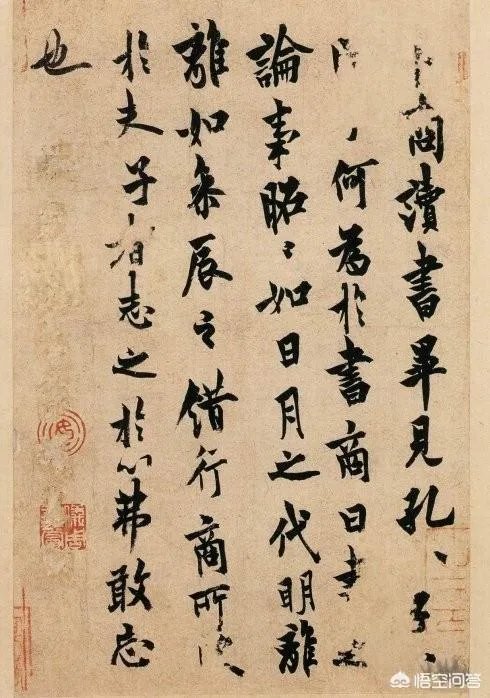 卜商問讀書畢見孔、子、
何為於書商曰書之
論事昭〻如日月之代明離
離如參辰之錯行商所受
於夫子者志之於心弗敢忘
也
悟空问答